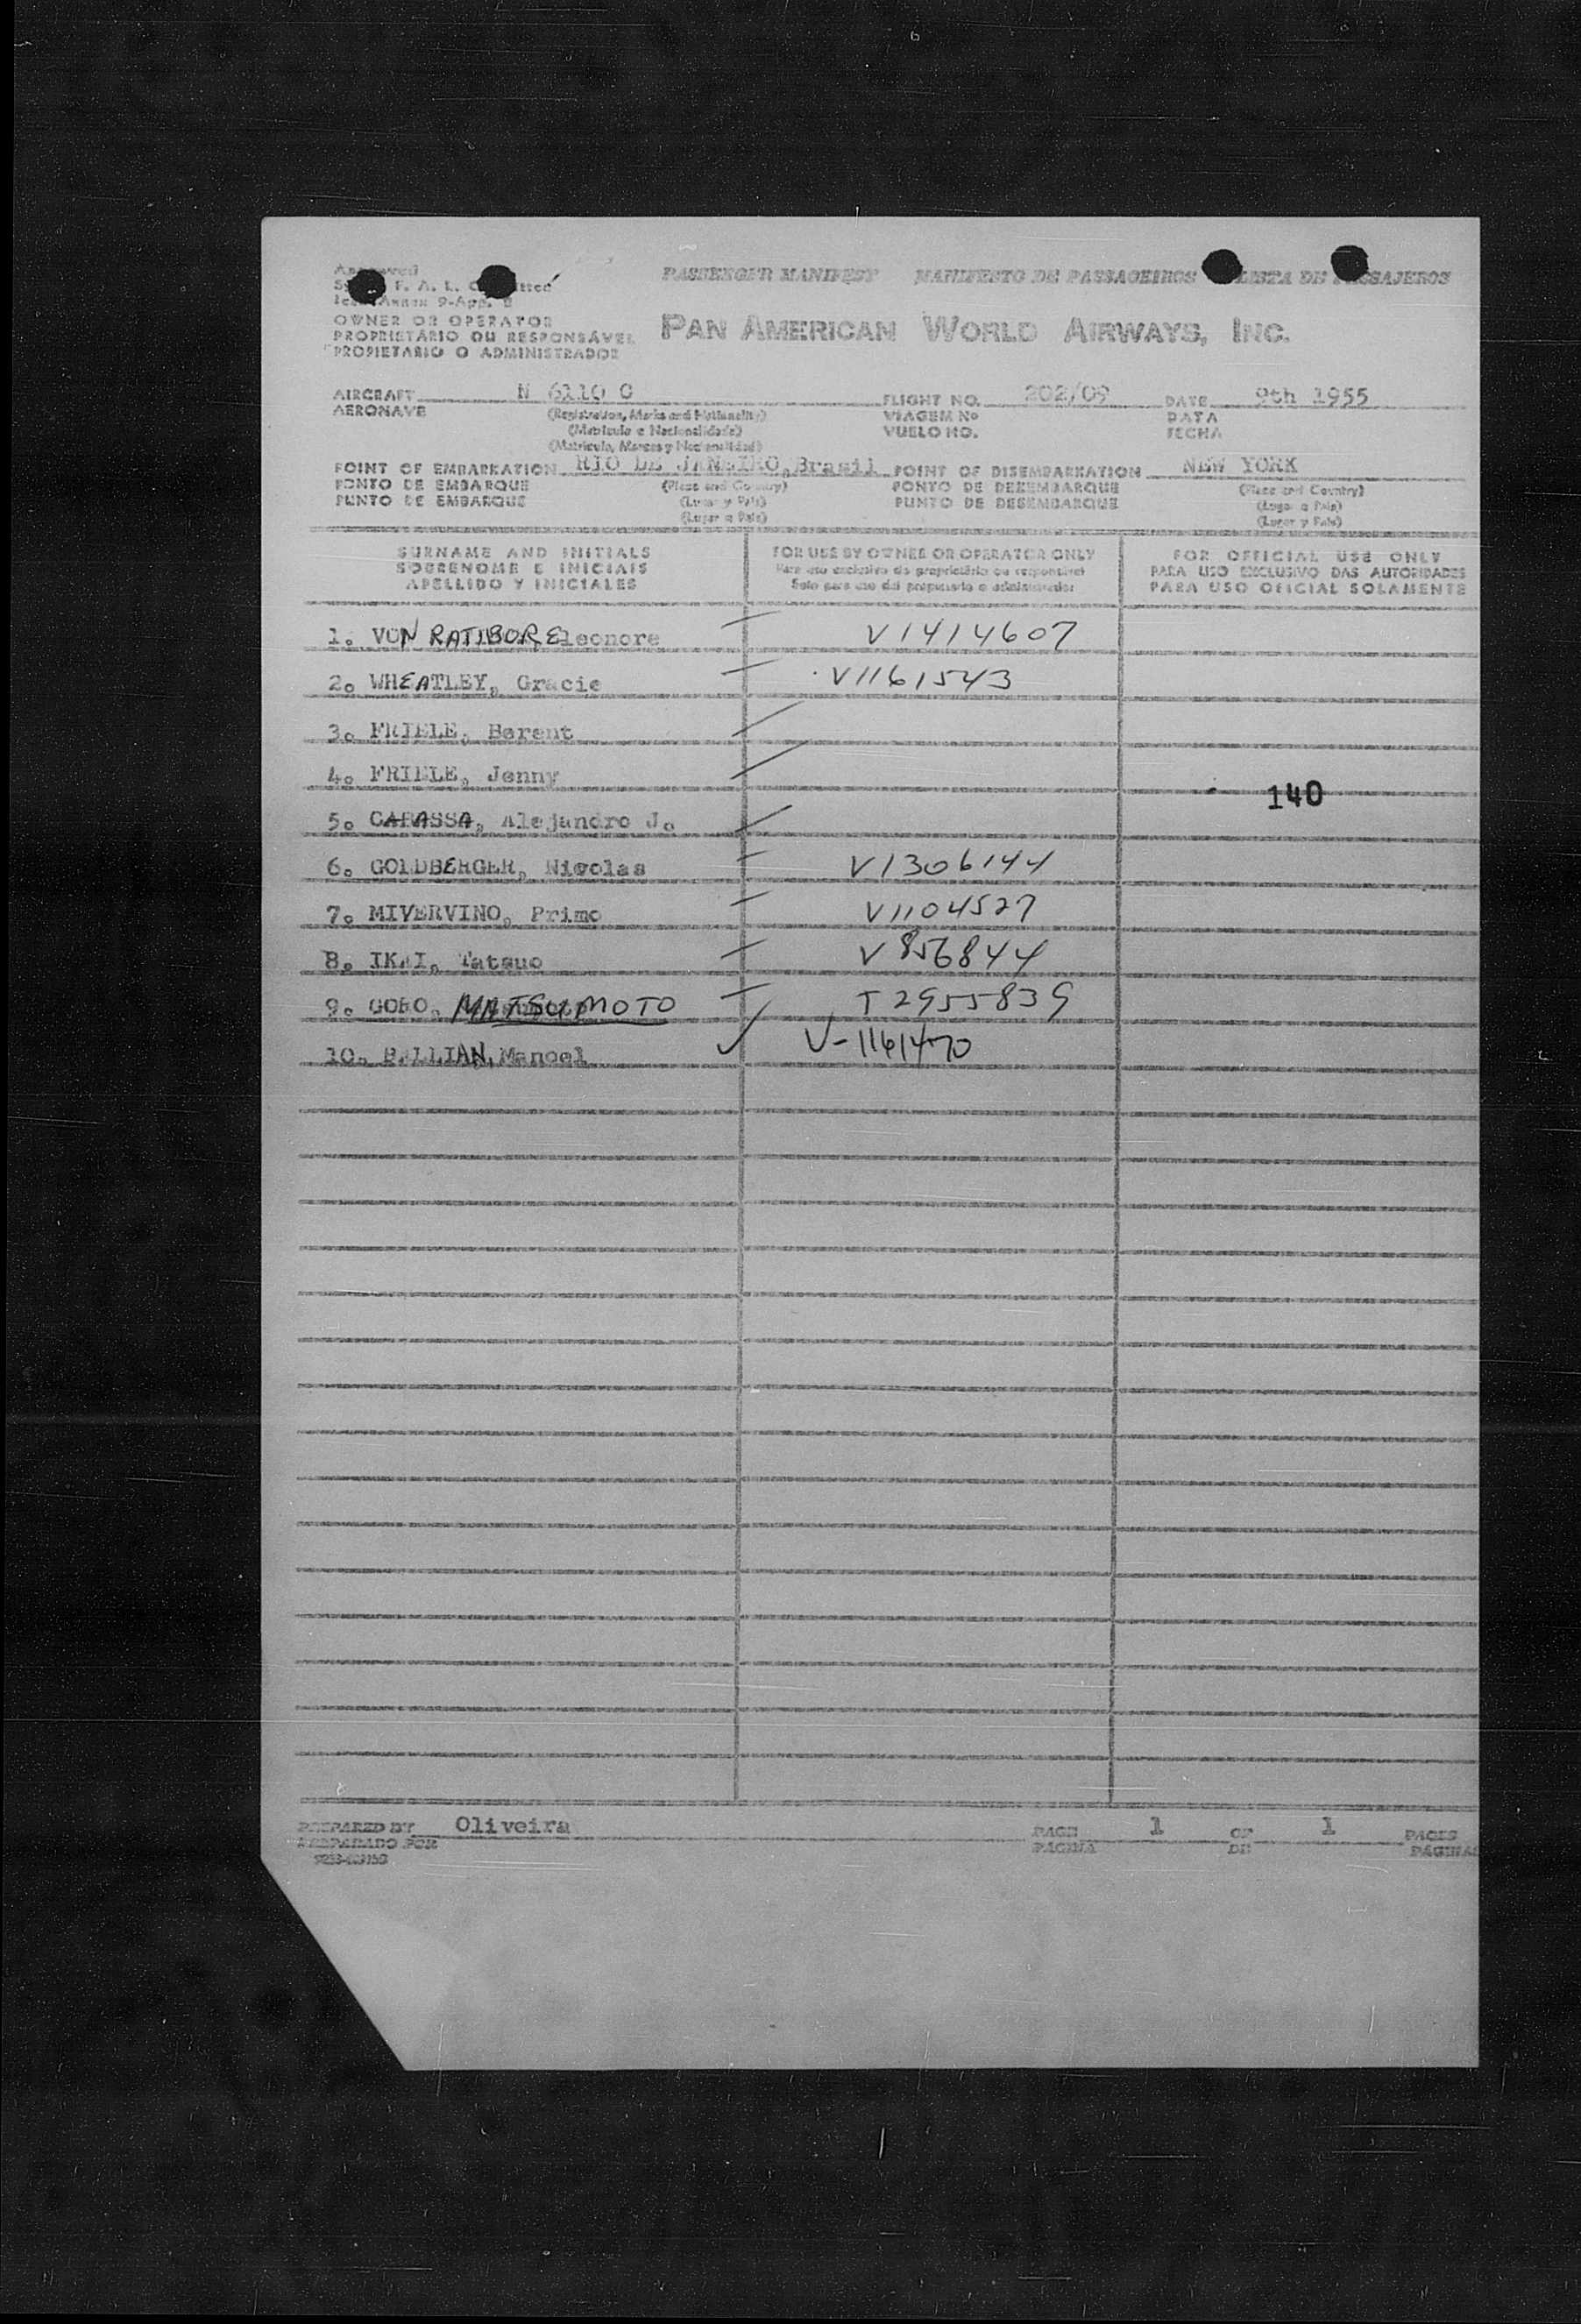 PASSENGER MANIFEST MANIFESTO DE PASSAGEIROS LISTA DE PASAJEROS
F. A. L.
Annex 9-App.
OWNER OR OPERATOR
PROPRIETÁRIO OU RESPONSÁVEL
PROPIETARIO O ADMINISTRADOR
PAN AMERICAN WORLD AIRWAYS, INC.
AIRCRAFT N 6110 C FLIGHT NO. 202/09 DATE 9th 1955
AERONAVE (Registration, Marks and Nationality) VIAGEM Nº DATA
(Matrícula e Nacionalidade) VUELO NO. FECHA
(Matrícula, Marcas y Nacionalidad)
POINT OF EMBARKATION RIO DE JANEIRO, Brasil POINT OF DISEMBARKATION NEW YORK
PONTO DE EMBARQUE (Place and Country) PONTO DE DESEMBARQUE (Place and Country)
PUNTO DE EMBARQUE (Lugar y País) PUNTO DE DESEMBARQUE (Lugar e País)
(Lugar e País) (Lugar y País)
SURNAME AND INITIALS FOR USE BY OWNER OR OPERATOR ONLY FOR OFFICIAL USE ONLY
SOBRENOME E INICIAIS Para uso exclusivo do proprietário ou responsável PARA USO EXCLUSIVO DAS AUTORIDADES
APELLIDO Y INICIALES Solo para uso del propietario o administrador PARA USO OFICIAL SOLAMENTE
1. VON RATIBOR Eleonore V1414607
2. WHEATLEY, Gracie V1161543
3. FRIELE, Berent
4. FRIELE, Jenny
140
5. CARASSA, Alejandro J.
6. GOLDBERGER, Nicolas V1306144
7. MIVERVINO, Primo V1104527
8. IKAI, Tatsuo V856844
9. GOBO, MATSUMOTO T2955839
10. BALLIAN, Manoel V-1161470
PREPARED BY Oliveira PAGE 1 OF 1 PAGES
PREPARADO POR PÁGINA DE PÁGINAS